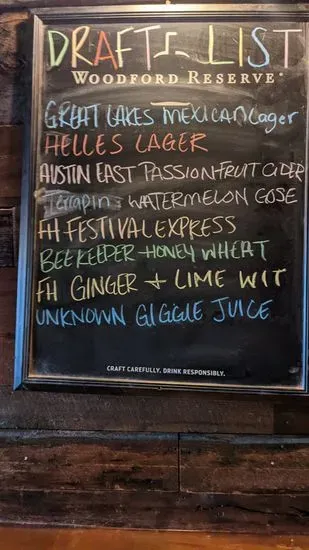 DRAFT LIST
WOODFORD RESERVE®
GREAT LAKES MEXICAN Lager
HELLES LAGER
AUSTIN EAST PASSION FRUIT CIDER
Terrapin: WATERMELON GOSE
FH FESTIVAL EXPRESS
BEEKEEPER - HONEY WHEAT
FH GINGER + LIME WIT
UNKNOWN GIGGLE JUICE
CRAFT CAREFULLY. DRINK RESPONSIBLY.